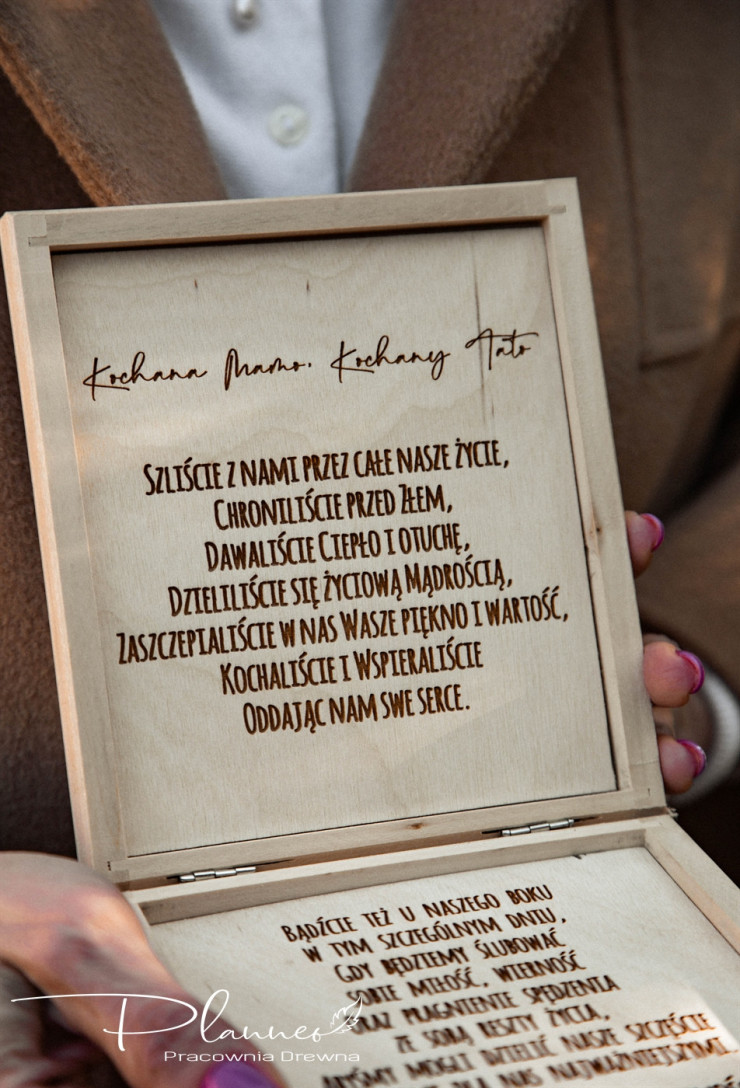 Kochana Mamo, Kochany Tato
Szliście z nami przez całe nasze życie,
Chroniliście przed Złem,
Dawaliście Ciepło i otuchę,
Dzieliliście się życiową Mądrością,
Zaszczepialiście w nas Wasze piękno i wartość,
Kochaliście i Wspieraliście
Oddając nam swe serce.
Bądźcie też u naszego boku
w tym szczególnym dniu,
gdy będziemy ślubować
sobie miłość, wierność
oraz pragnienie spędzenia
ze sobą reszty życia,
abyśmy mogli dzielić nasze szczęście
dla nas najważniejszymi.
Planneo
Pracownia Drewna